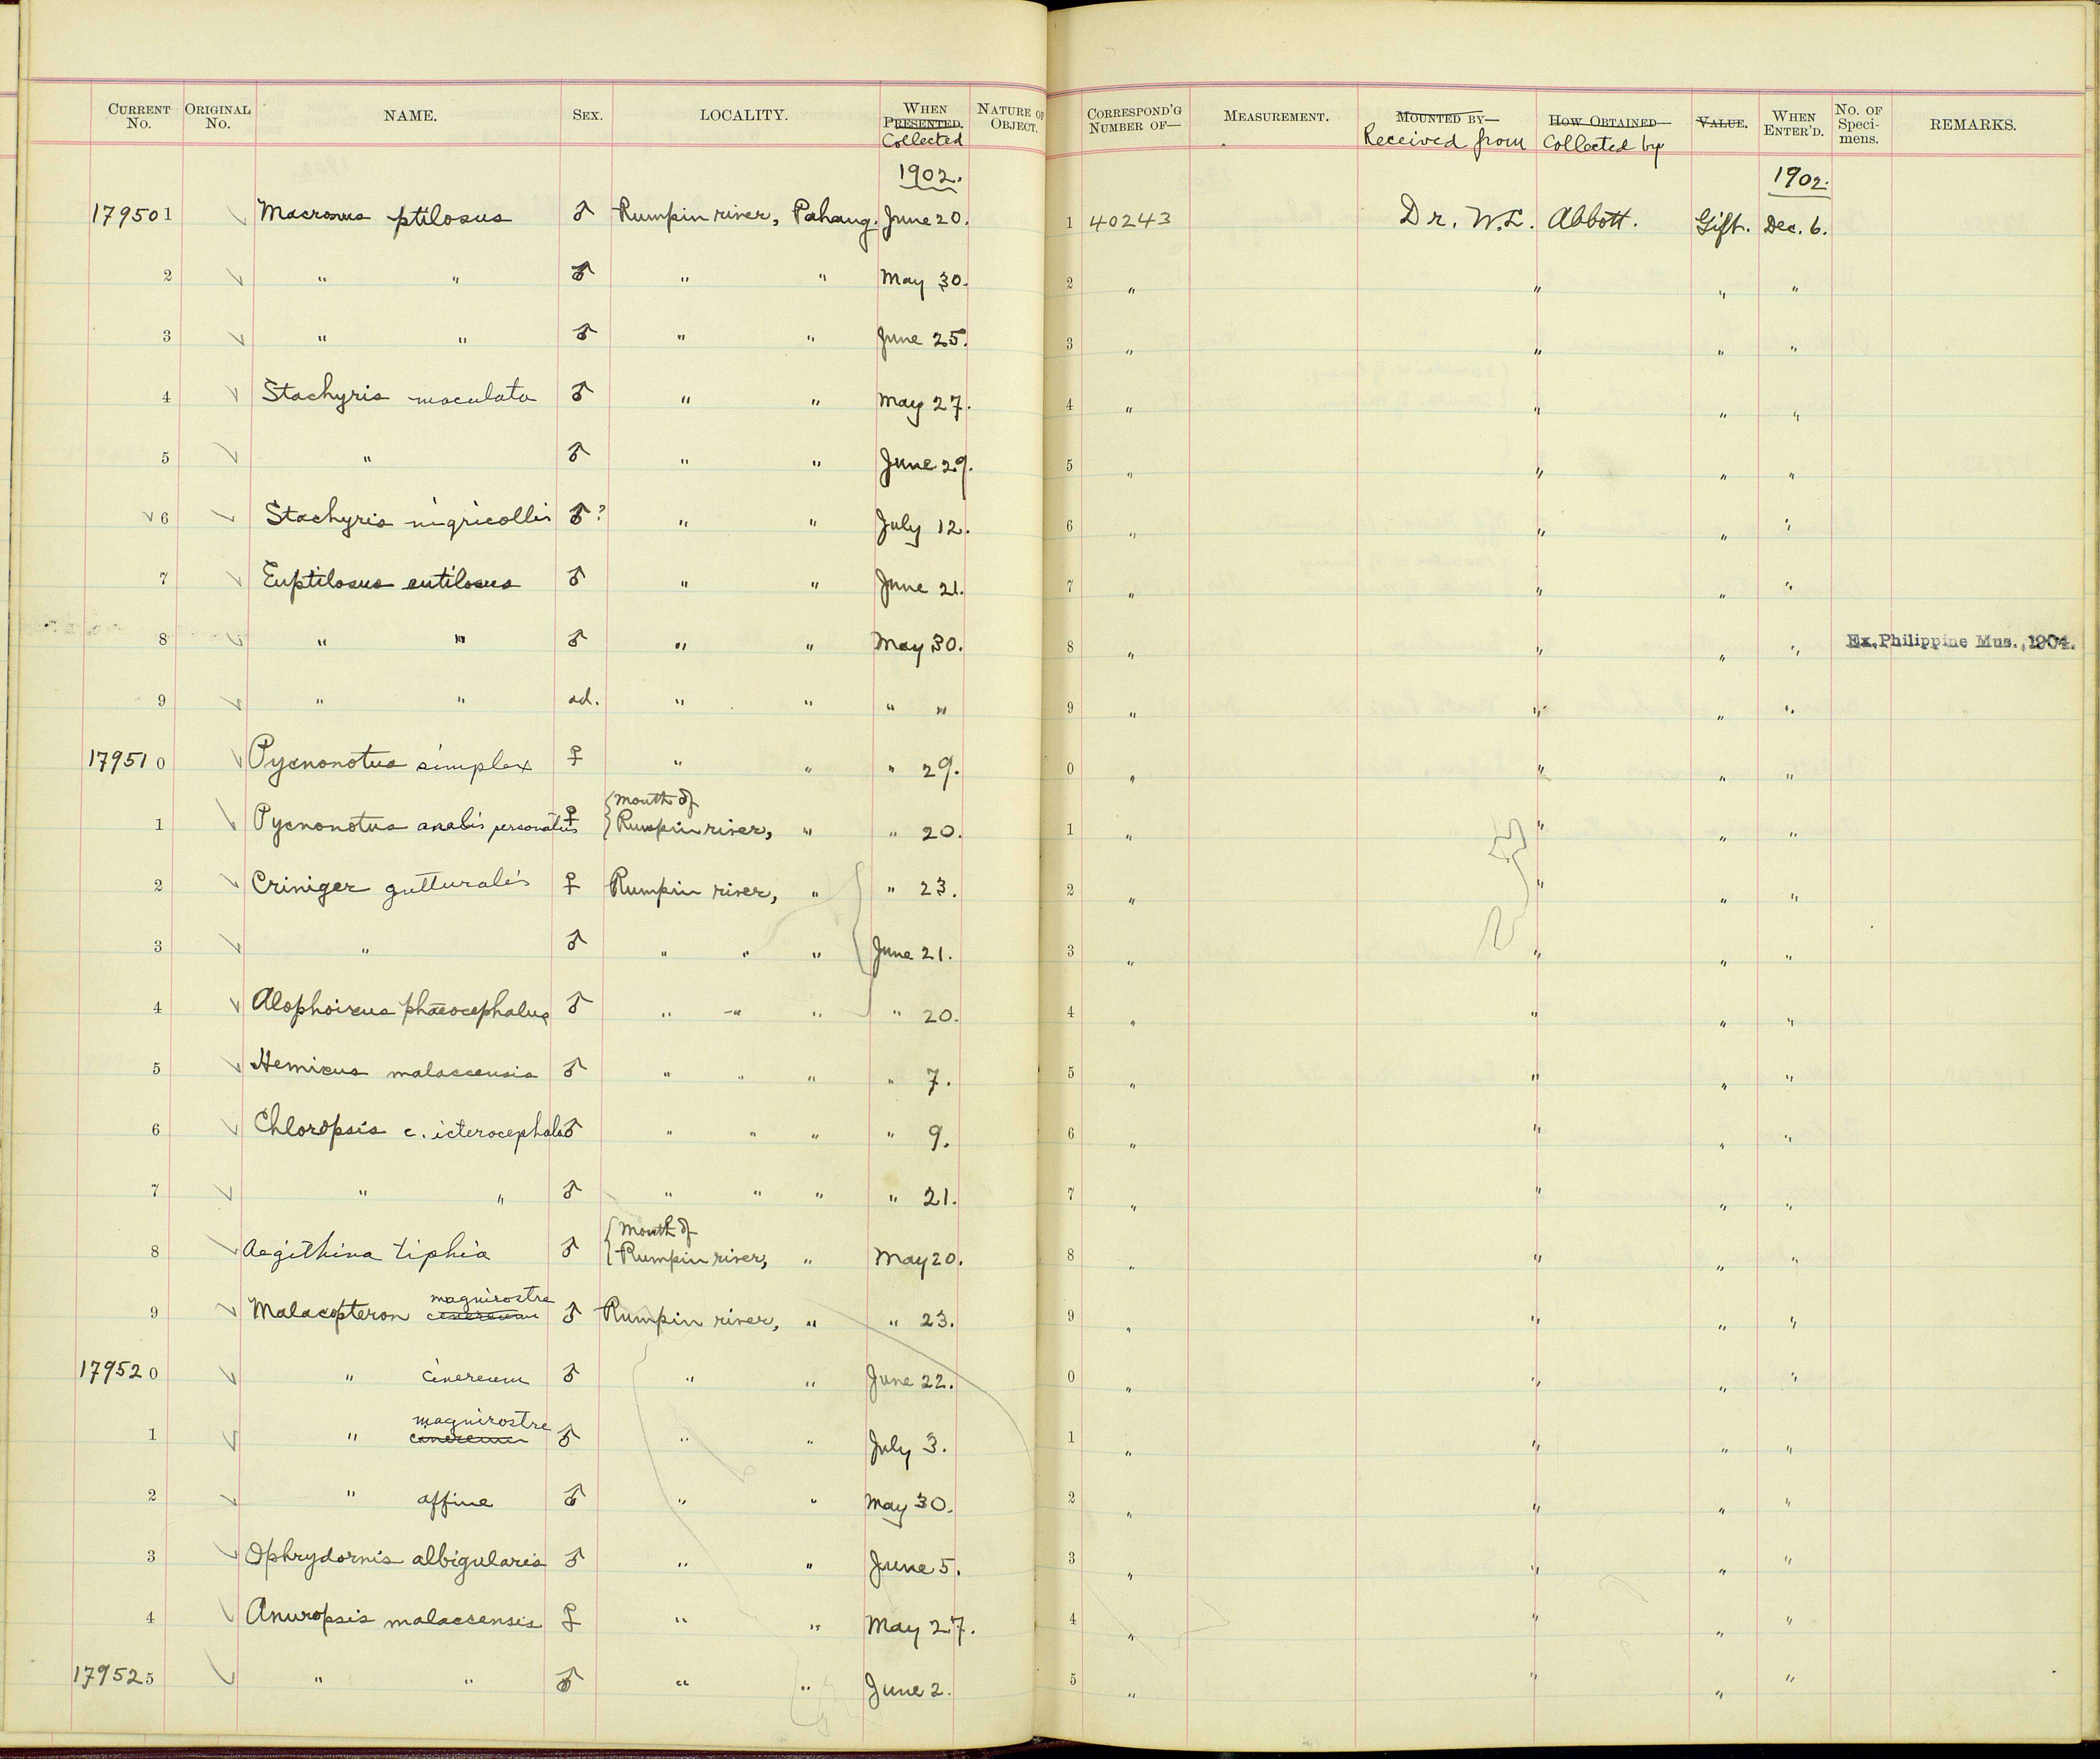 CURRENT No. ORIGINAL No. NAME. SEX. LOCALITY. WHEN PRESENTED. Collected NATURE OF OBJECT. CORRESPOND'G NUMBER OF— MEASUREMENT. MOUNTED BY— Received from HOW OBTAINED— Collected by VALUE. WHEN ENTER'D. No. OF Specimens. REMARKS.
1902. 1902.
179501 ✓ Macronus ptilosus ♂ Rumpin river, Pahang. June 20. 1 40243 Dr. W. L. Abbott. Gift. Dec. 6.
2 ✓ " " ♂ " " May 30. 2 " " " "
3 ✓ " " ♂ " " June 25. 3 " " " "
4 ✓ Stachyris maculata ♂ " " May 27. 4 " " " "
5 ✓ " ♂ " " June 29. 5 " " " "
✓ 6 ✓ Stachyris nigricollis ♂? " " July 12. 6 " " " "
7 ✓ Euptilosus eutilosus ♂ " " June 21. 7 " " " "
8 ✓ " " ♂ " " May 30. 8 " " " " Ex. Philippine Mus., 1904.
9 ✓ " " ad. " " " " 9 " " " "
179510 ✓ Pycnonotus simplex ♀ " " " 29. 0 " " " "
1 ✓ Pycnonotus analis personatus ♀ { Mouth of Rumpin river, " " 20. 1 " " " "
2 ✓ Criniger gutturalis ♀ Rumpin river, " " 23. 2 " " " "
3 ✓ " ♂ " " " June 21. 3 " " " "
4 ✓ Alophoixus phaeocephalus ♂ " " " " 20. 4 " " " "
5 ✓ Hemixus malaccensis ♂ " " " " 7. 5 " " " "
6 ✓ Chloropsis c. icterocephala ♂ " " " " 9. 6 " " " "
7 ✓ " " ♂ " " " " 21. 7 " " " "
8 ✓ Aegithina tiphia ♂ { Mouth of Rumpin river, " May 20. 8 " " " "
9 ✓ Malacopteron cinereum magnirostre ♂ Rumpin river, " " 23. 9 " " " "
179520 ✓ " cinereum ♂ " " June 22. 0 " " " "
1 ✓ " cinereum magnirostre ♂ " " July 3. 1 " " " "
2 ✓ " affine ♂ " " May 30. 2 " " " "
3 ✓ Ophrydornis albigularis ♂ " " June 5. 3 " " " "
4 ✓ Anuropsis malaccensis ♀ " " May 27. 4 " " " "
179525 ✓ " " ♂ " " June 2. 5 " " " "